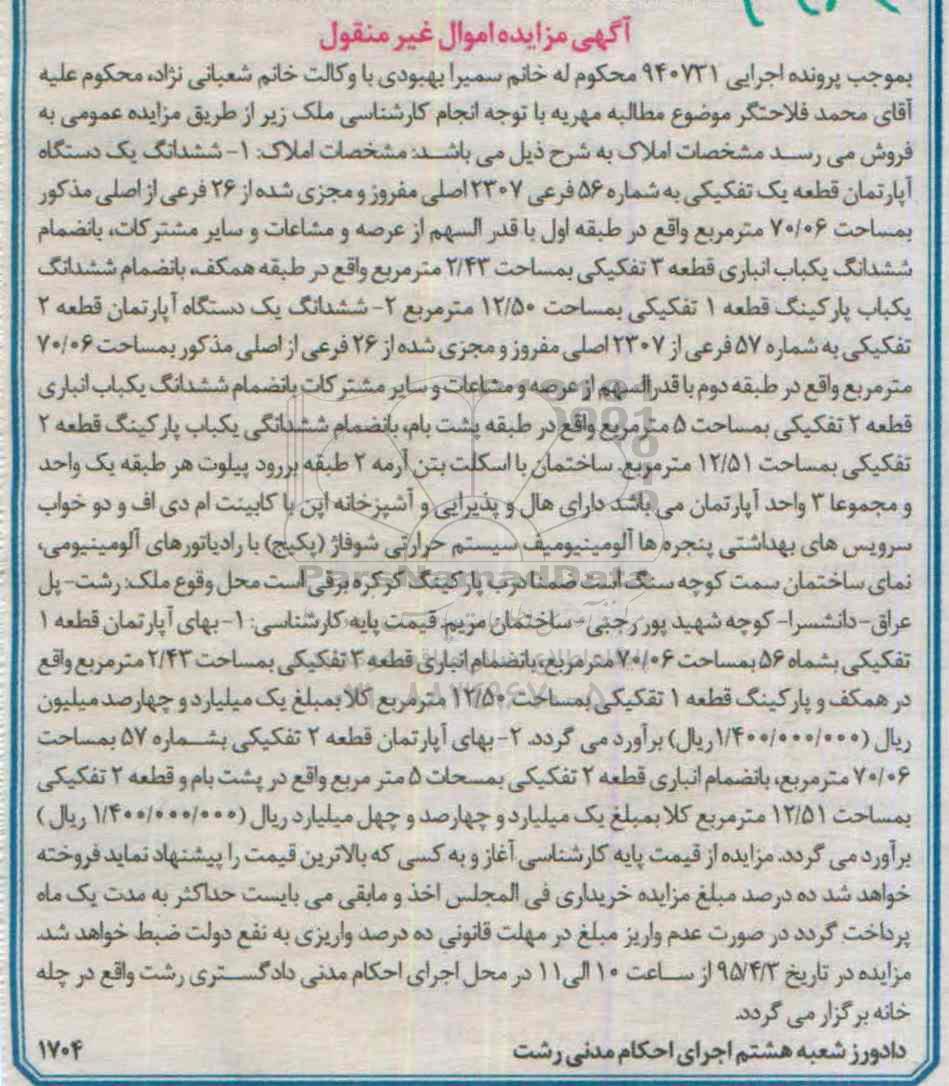 آگهی مزایده اموال غیر منقول
بموجب پرونده اجرایی ۹۴۰۷۳۱ محکوم له خانم سمیرا بهبودی با وکالت خانم شعبانی نژاد، محکوم علیه
آقای محمد فلاحتگر موضوع مطالبه مهریه با توجه انجام کارشناسی ملک زیر از طریق مزایده عمومی به
فروش می رسد مشخصات املاک به شرح ذیل می باشد: مشخصات املاک: ۱- ششدانگ یک دستگاه
آپارتمان قطعه یک تفکیکی به شماره ۵۶ فرعی ۲۳۰۷ اصلی مفروز و مجزی شده از ۲۶ فرعی از اصلی مذکور
بمساحت ۷۰/۰۶ مترمربع واقع در طبقه اول با قدر السهم از عرصه و مشاعات و سایر مشترکات، بانضمام
ششدانگ یکباب انباری قطعه ۳ تفکیکی بمساحت ۲/۴۳ مترمربع واقع در طبقه همکف، بانضمام ششدانگ
یکباب پارکینگ قطعه ۱ تفکیکی بمساحت ۱۲/۵۰ مترمربع ۲- ششدانگ یک دستگاه آپارتمان قطعه ۲
تفکیکی به شماره ۵۷ فرعی از ۲۳۰۷ اصلی مفروز و مجزی شده از ۲۶ فرعی از اصلی مذکور بمساحت ۷۰/۰۶
مترمربع واقع در طبقه دوم با قدرالسهم از عرصه و مشاعات و سایر مشترکات بانضمام ششدانگ یکباب انباری
قطعه ۲ تفکیکی بمساحت ۵ مترمربع واقع در طبقه پشت بام، بانضمام ششدانگی یکباب پارکینگ قطعه ۲
تفکیکی بمساحت ۱۲/۵۱ مترمربع. ساختمان با اسکلت بتن آرمه ۲ طبقه برروی پیلوت هر طبقه یک واحد
و مجموعا ۳ واحد آپارتمان می باشد دارای هال و پذیرایی و آشپزخانه اپن با کابینت ام دی اف و دو خواب
سرویس های بهداشتی پنجره ها آلومینیومیف سیستم حرارتی شوفاژ (پکیج) با رادیاتورهای آلومینیومی،
نمای ساختمان سمت کوچه سنگ است ضمنا درب پارکینگ کرکره برقی است محل وقوع ملک: رشت- پل
عراق- دانشسرا- کوچه شهید پور رجبی- ساختمان مریم. قیمت پایه کارشناسی: ۱- بهای آپارتمان قطعه ۱
تفکیکی بشماه ۵۶ بمساحت ۷۰/۰۶ مترمربع، بانضمام انباری قطعه ۳ تفکیکی بمساحت ۲/۴۳ مترمربع واقع
در همکف و پارکینگ قطعه ۱ تفکیکی بمساحت ۱۲/۵۰ مترمربع کلا بمبلغ یک میلیارد و چهارصد میلیون
ریال (۱/۴۰۰/۰۰۰/۰۰۰ریال) برآورد می گردد. ۲- بهای آپارتمان قطعه ۲ تفکیکی بشماره ۵۷ بمساحت
۷۰/۰۶ مترمربع، بانضمام انباری قطعه ۲ تفکیکی بمسحات ۵ متر مربع واقع در پشت بام و قطعه ۲ تفکیکی
بمساحت ۱۲/۵۱ مترمربع کلا بمبلغ یک میلیارد و چهارصد و چهل میلیارد ریال (۱/۴۰۰/۰۰۰/۰۰۰ ریال)
برآورد می گردد. مزایده از قیمت پایه کارشناسی آغاز و به کسی که بالاترین قیمت را پیشنهاد نماید فروخته
خواهد شد ده درصد مبلغ مزایده خریداری فی المجلس اخذ و مابقی می بایست حداکثر به مدت یک ماه
پرداخت گردد در صورت عدم واریز مبلغ در مهلت قانونی ده درصد واریزی به نفع دولت ضبط خواهد شد.
مزایده در تاریخ ۹۵/۴/۳ از ساعت ۱۰ الی۱۱ در محل اجرای احکام مدنی دادگستری رشت واقع در چله
خانه برگزار می گردد.
دادورز شعبه هشتم اجرای احکام مدنی رشت ۱۷۰۴
ParsNamadData